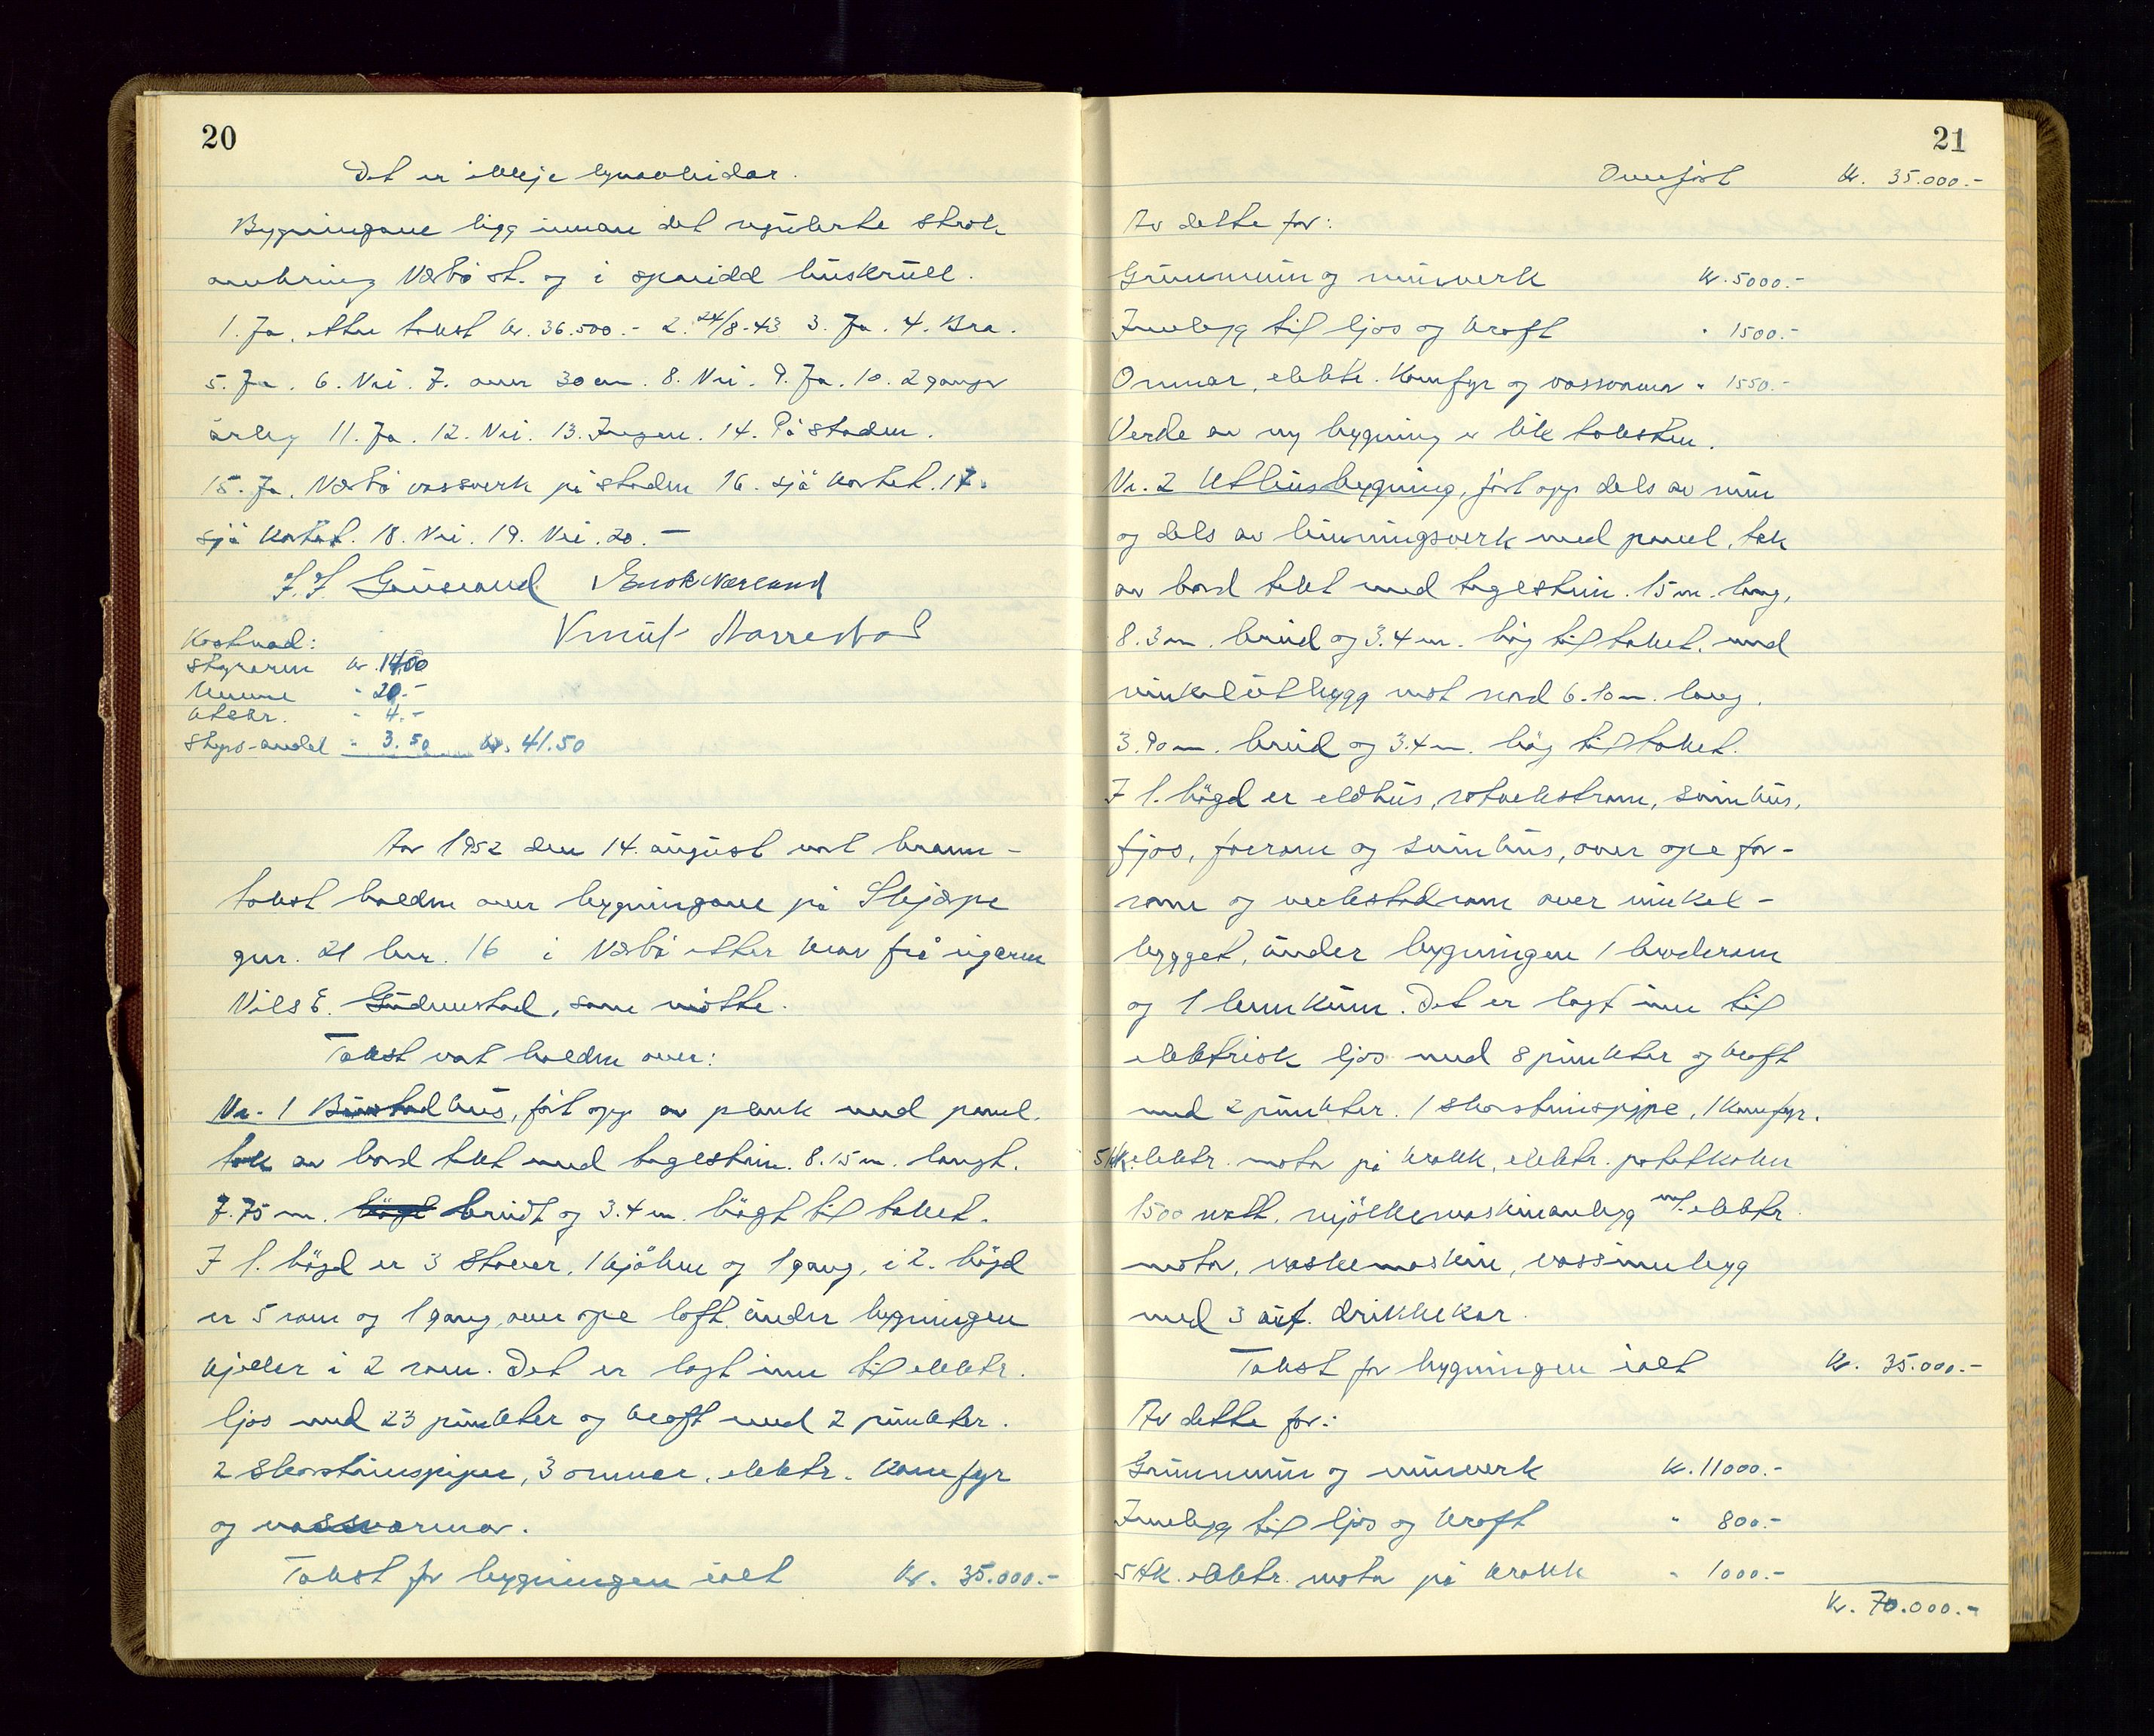 20
Det er ikkje lynavleidar.
Bygningane ligg innan det regulerte strøk
omkring Nærbø st. og i spreidd huskrull.
1. Ja, etter takst kr. 36.500.- 2. 24/8-43. 3. Ja. 4. Bra.
5. Ja. 6. Nei. 7. over 30 cm. 8. Nei. 9. Ja. 10. 2 ganger
årleg 11. Ja. 12. Nei. 13. Ingen. 14. På staden.
15. Ja. Nærbø vassverk på staden 16. sjå kartet. 17.
sjå kartet. 18. Nei. 19. Nei. 20. —
Enok Nærland
Knut Narrestad
Kostnad:
Styraren kr. 14.00
" 20.-
" 4.-
Skyss-andel " 3.50 kr. 41.50
År 1952 den 14. august vart brann-
takst halden over bygningane på Skjærpe
gnr. 21 bnr. 16 i Nærbø etter krav frå eigaren
Nils E. Gudmestad, som møtte.
Takst vart halden over:
Nr. 1 Bustadhus, ført opp av plank med panel.
tak av bord tekt med teglstein. 8.15 m. langt.
7.75 m. breidt og 3.4 m. högt til taket.
I 1. högd er 3 stover, 1 kjöken og 1 gang, i 2. högd
er 5 rom og 1 gang, over ope loft. under bygningen
kjeller i 2 rom. Det er lagt inn til elektr.
ljos med 23 punkter og kraft med 2 punkter.
2 skorsteinspiper, 3 omnar, elektr. Komfyr
og vassvarmar.
Takst for bygningen ialt kr. 35.000.-
21
Overført kr. 35.000.-
Av dette for:
Grunnmur og murverk kr. 5000.-
Innlegg til ljos og kraft " 1500.-
Omnar, elektr. Komfyr og vassvarmar " 1550.-
Verde av ny bygning er lik taksten.
Nr. 2 Uthusbygning, ført opp dels av mur
og dels av binningsverk med panel, tak
av bord tekt med teglstein. 15 m. lang,
8.3 m. breid og 3.4 m. høg til taket. med
vinkelutbygg mot nord 6.10 m. lang.
3.90 m. breid og 3.4 m. høg til taket.
I 1. högd er eldhus, svinhus,
fjos, forrom og svinhus, over ope for-
rom og verkstadrom over vinkel-
bygget, under bygningen 1 boderom
og 1 Det er lagt inn til
elektrisk ljos med 8 punkter og kraft
med 2 punkter. 1 skorsteinspipe, 1 komfyr.
5 Hk. elektr. motor på krakk, elektr. potetkoker
1500 watt, mjölkemaskinanlegg m/ elektr.
motor, vaskemaskin, vassinnlegg
med 3 aut. drikkekar.
Takst for bygningen ialt kr. 35.000.-
Av dette for:
Grunnmur og murverk kr. 11000.-
Innlegg til ljos og kraft " 800.-
5 Hk. elektr. motor på krakk " 1000.-
kr. 70.000.-